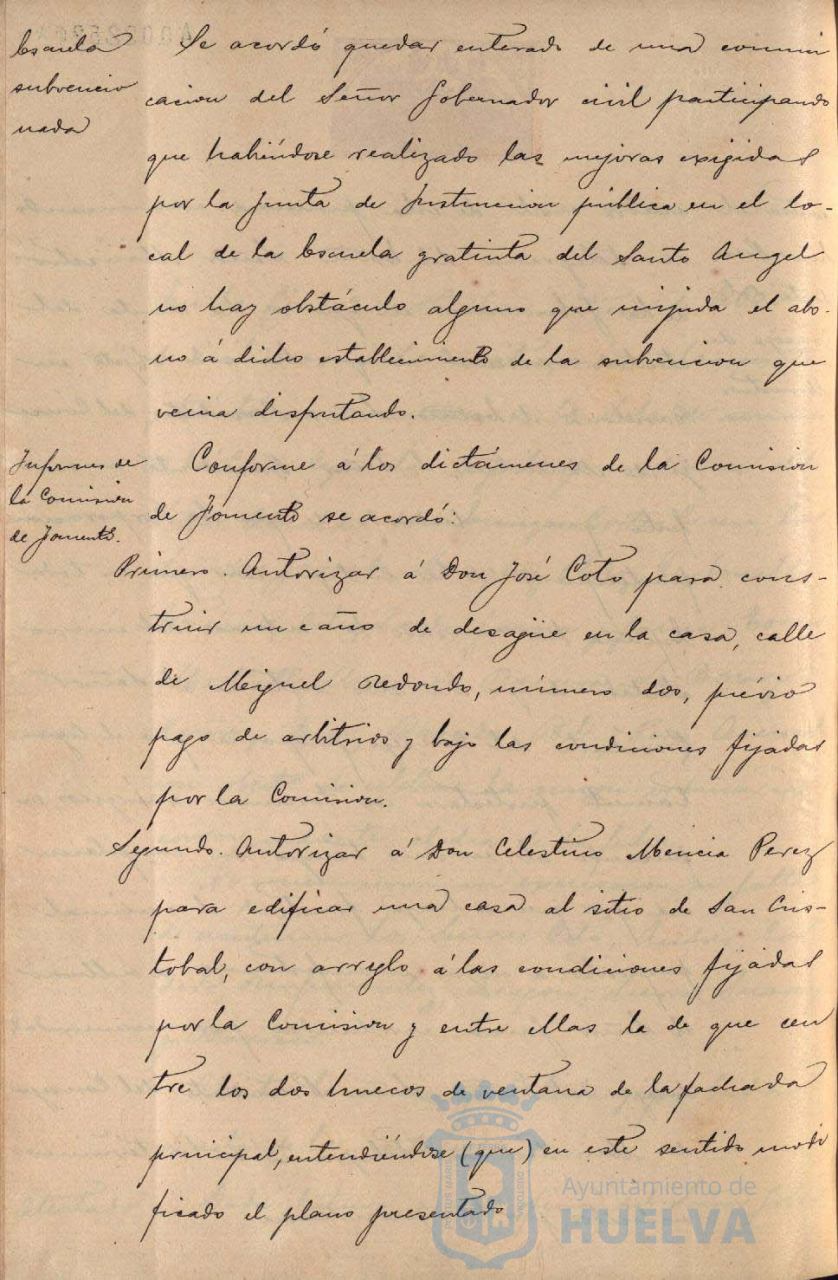 Escuela
subvencio
nada
Se acordó quedar enterado de una comuni
cacion del Señor Gobernador civil participando
que habiéndose realizado las mejoras exigidas
por la Junta de Instruccion pública en el lo-
cal de la Escuela gratuita del Santo Angel
no hay obstáculo alguno que impida el abo-
no á dicho establecimiento de la subvencion que
venia disfrutando.
Informes de
la Comision
de Fomento.
Conforme á los dictámenes de la Comision
de Fomento se acordó:
Primero. Autorizar á Don José Coto para cons-
truir un caño de desagüe en la casa, calle
de Miguel Redondo, número dos, prévio
pago de arbitrios y bajo las condiciones fijadas
por la Comision.
Segundo. Autorizar á Don Celestino Mencia Perez
para edificar una casa al sitio de San Cris-
tobal, con arreglo á las condiciones fijadas
por la Comision y entre ellas la de que cen
tre los dos huecos de ventana de la fachada
principal, entendiéndose (que) en este sentido modi
ficado el plano presentado.
Ayuntamiento de
HUELVA